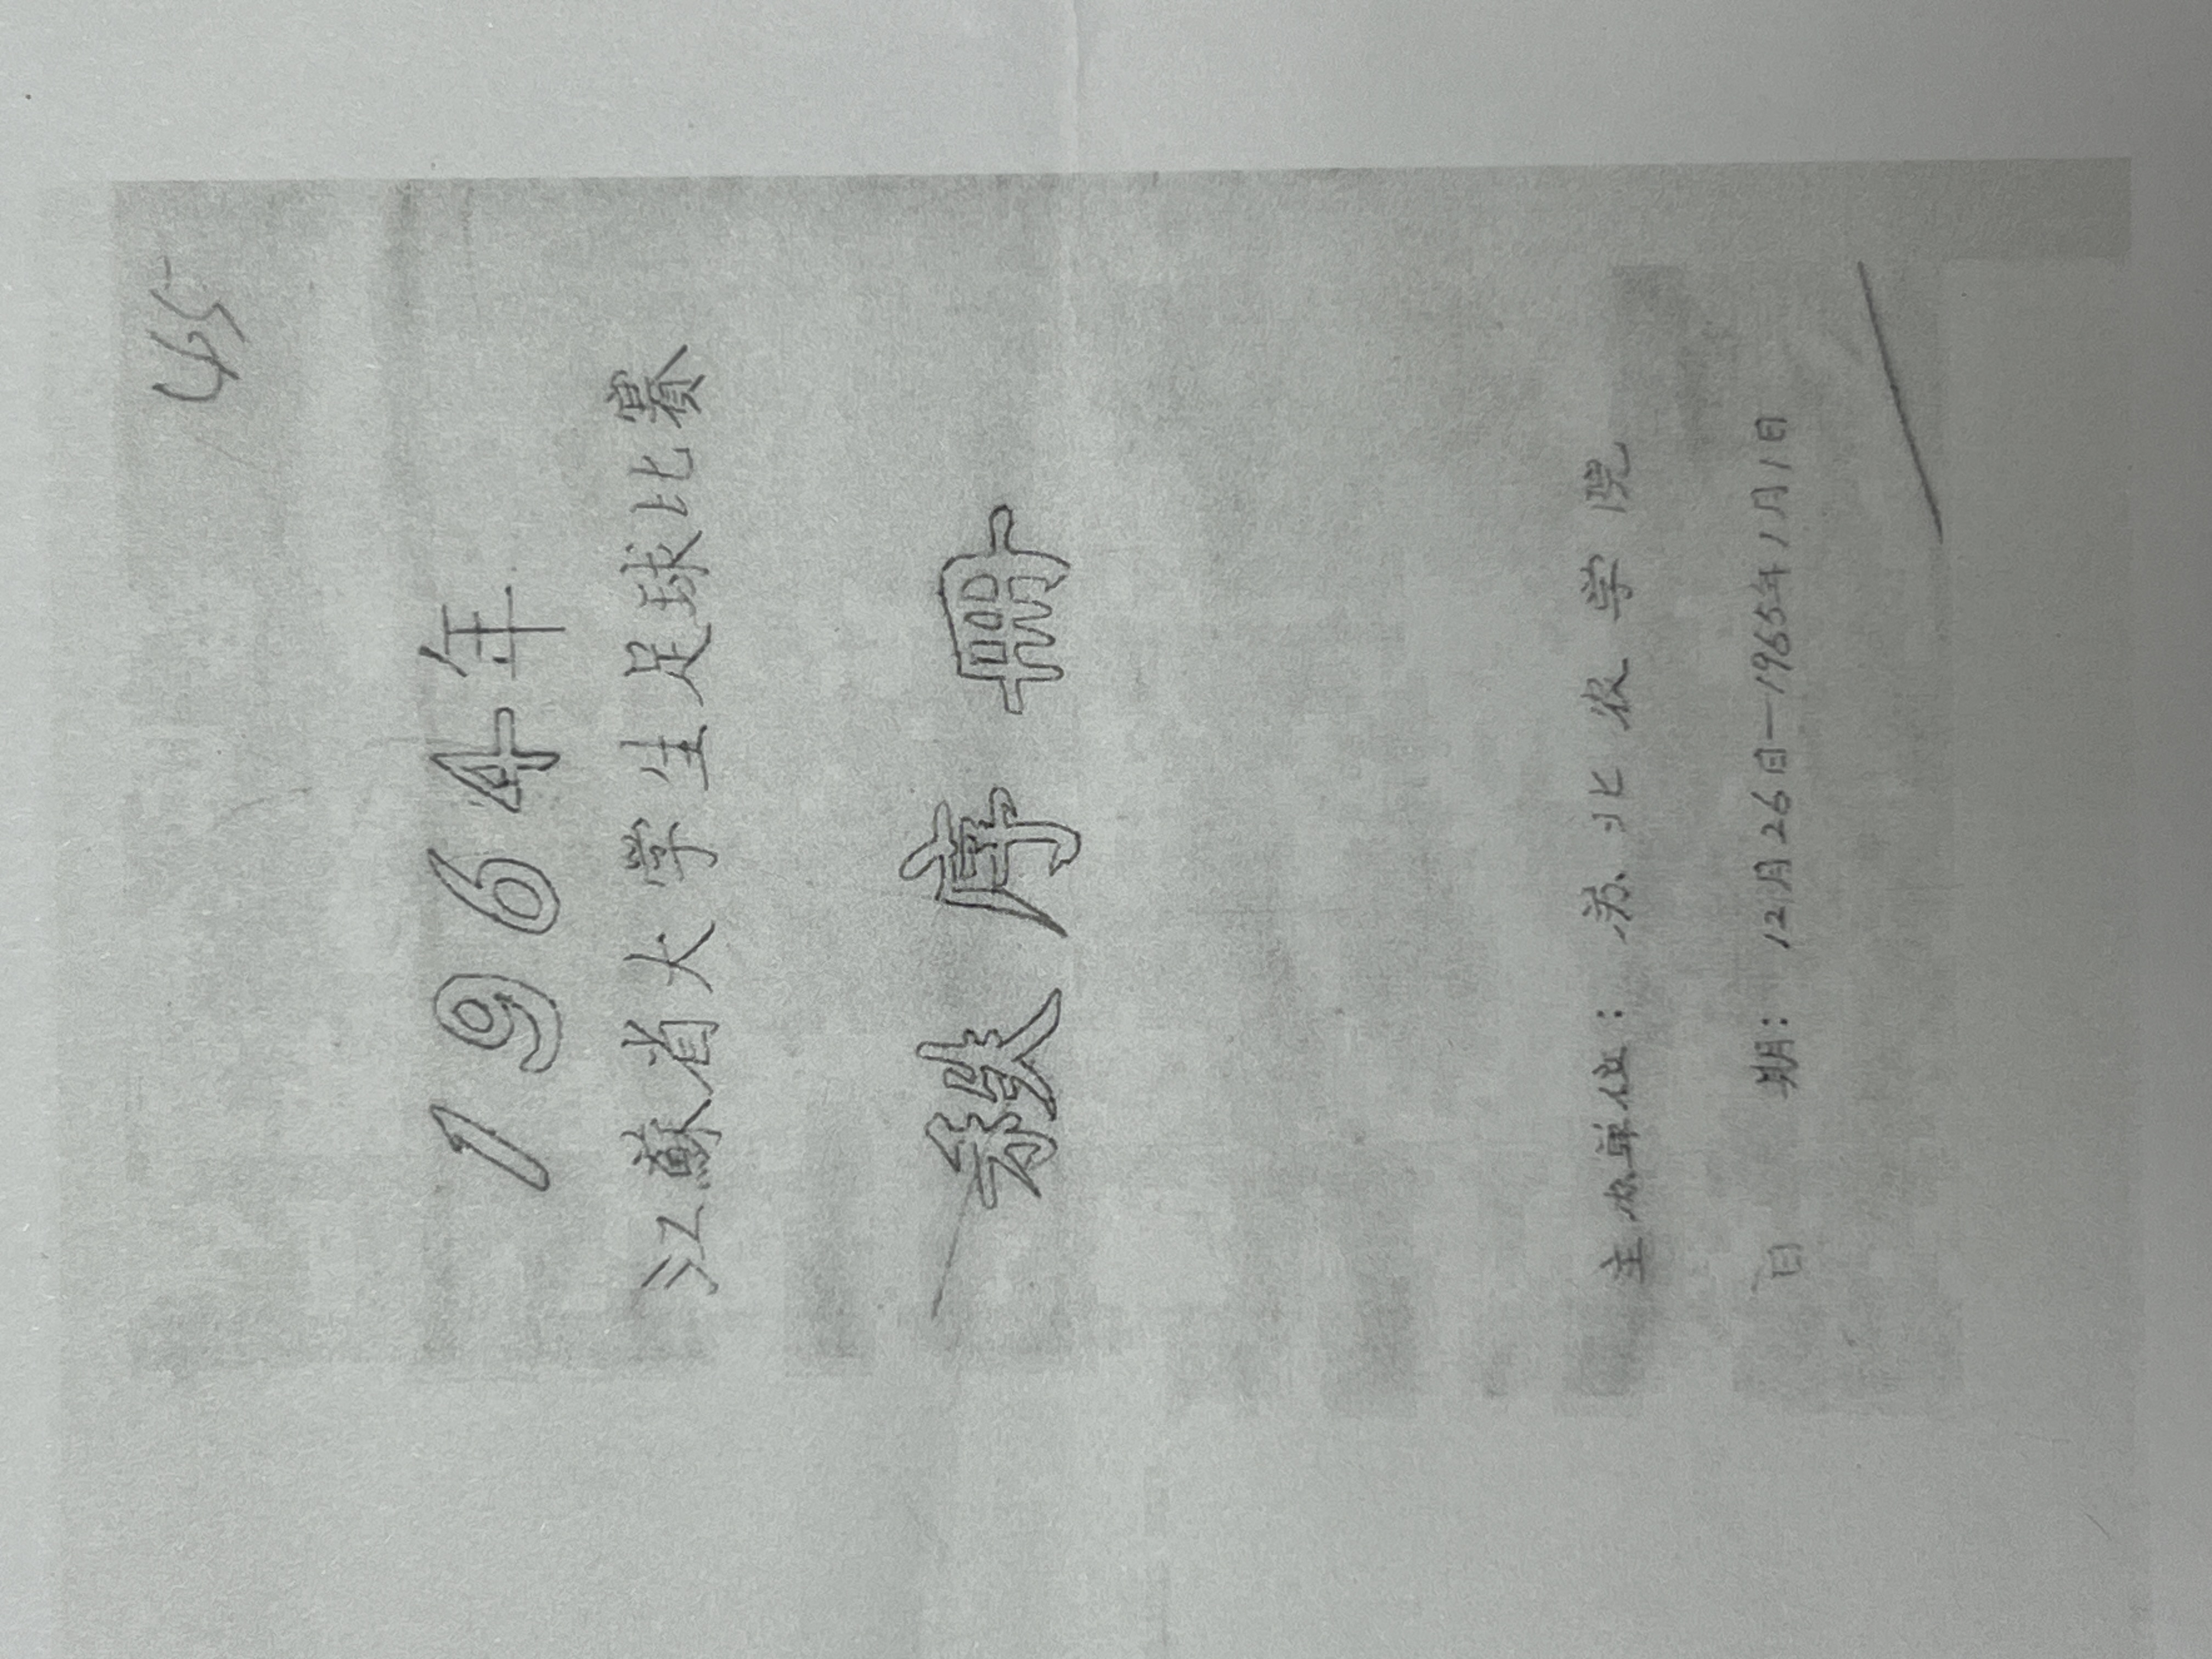 45
1964年
江蘇省大学生足球比赛
秩序冊
主办单位：苏北农学院
日期：12月26日—1965年1月1日